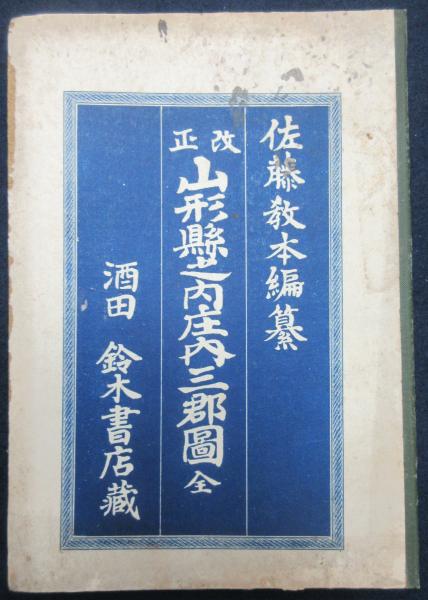 佐藤敎本編纂
改正
山形縣之内庄内三郡圖全
酒田 鈴木書店藏